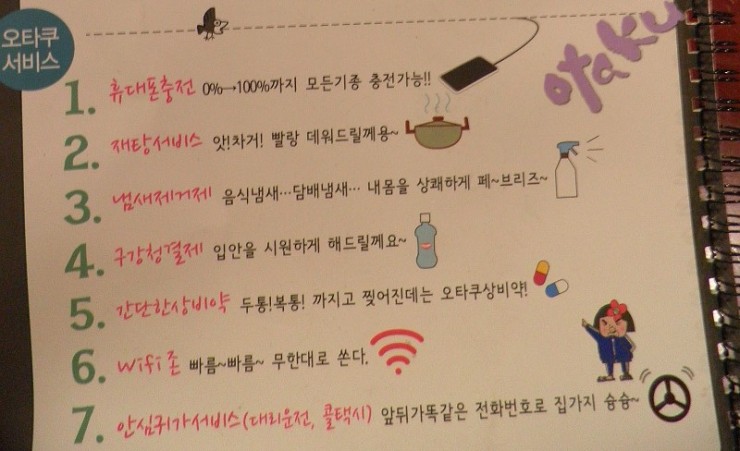 오타쿠
서비스
otaku
1. 휴대폰충전 0%→100%까지 모든기종 충전가능!!
2. 재탕서비스 앗!차거! 빨랑 데워드릴께용~
3. 냄새제거제 음식냄새…담배냄새… 내몸을 상쾌하게 페~브리즈~
4. 구강청결제 입안을 시원하게 해드릴께요~
5. 간단한상비약 두통!복통! 까지고 찢어진데는 오타쿠상비약!
6. wifi존 빠름~빠름~ 무한대로 쏜다.
7. 안심귀가서비스(대리운전, 콜택시) 앞뒤가똑같은 전화번호로 집가지 슝슝~